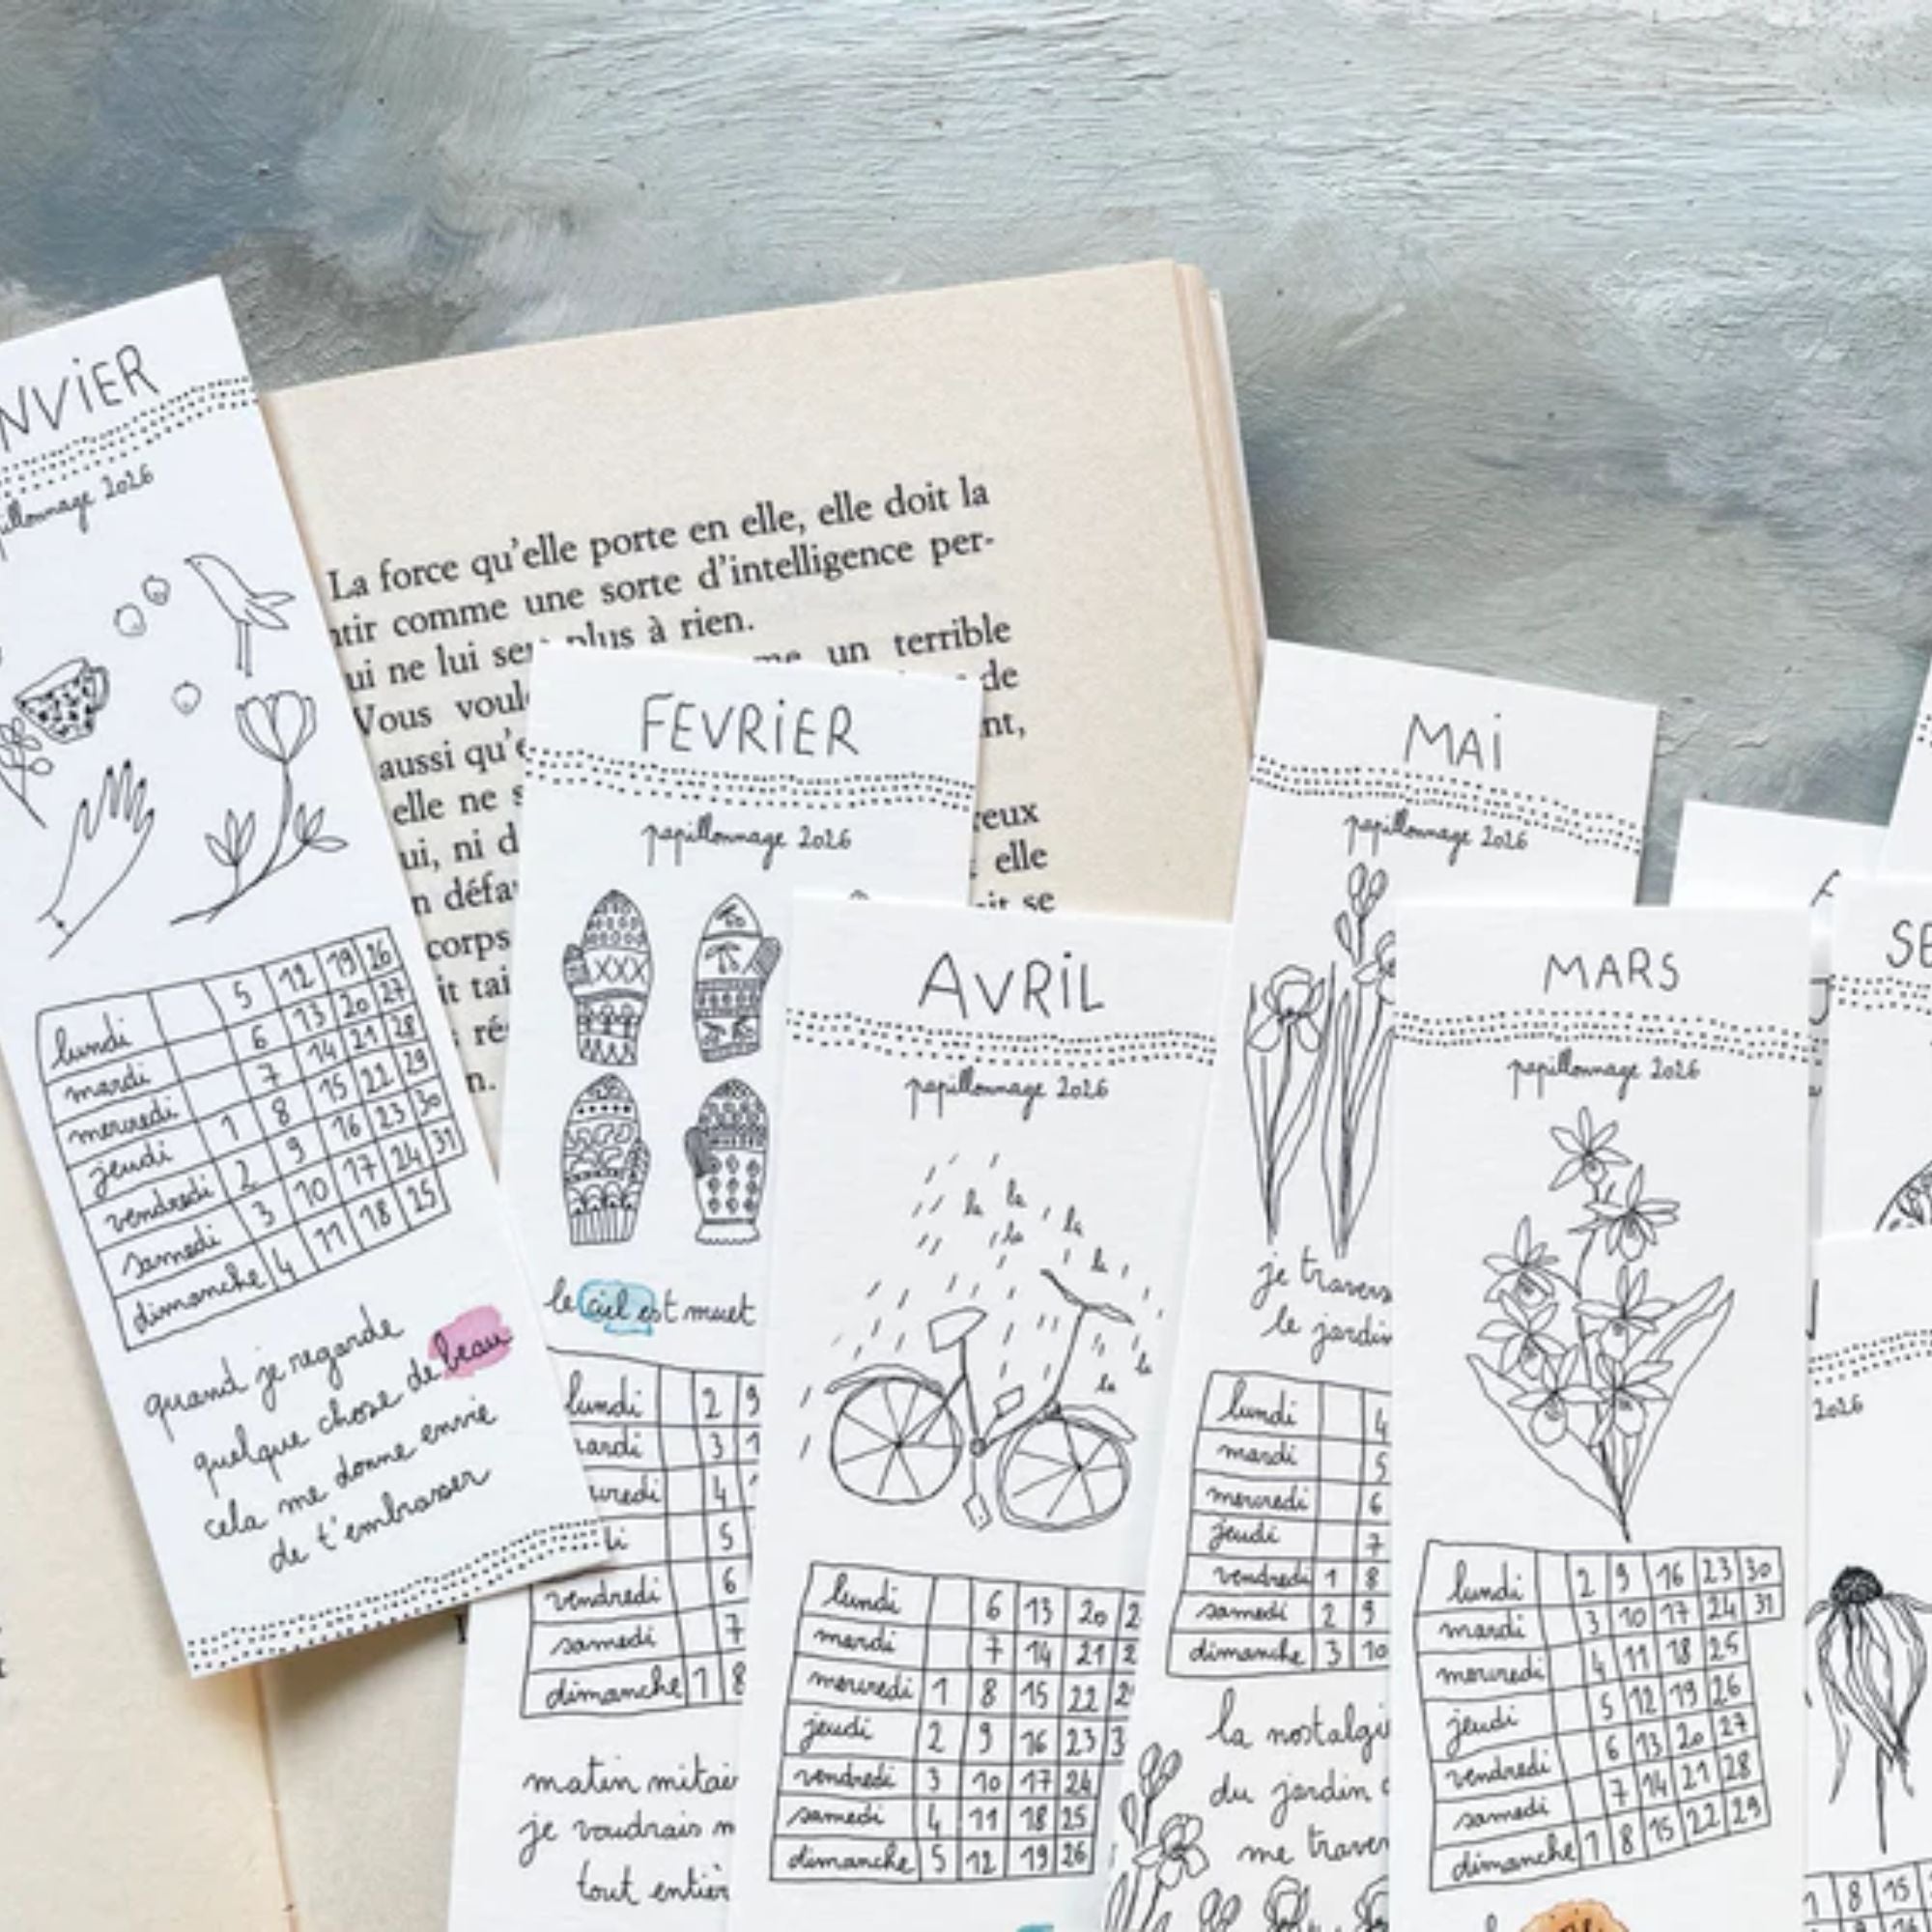 NVIER
papillonnage 2026
lundi 5 12 19 26
mardi 6 13 20 27
mercredi 7 14 21 28
jeudi 1 8 15 22 29
vendredi 2 9 16 23 30
samedi 3 10 17 24 31
dimanche 4 11 18 25
quand je regarde
quelque chose de beau
cela me donne envie
de t'embrasser
La force qu'elle porte en elle, elle doit la
ntir comme une sorte d'intelligence per-
ui ne lui plus à rien.
un terrible
Vous de
aussi
elle ne
reux
ui, ni elle
se
corps
FEVRIER
papillonnage 2026
le ciel est muet
lundi 2 9
mardi 3
4
5
vendredi 6
samedi 7
dimanche 1 8
matin
je voudrais
tout
AVRIL
papillonnage 2026
la la la
la la
la
la
lundi 6 13 20
mardi 7 14 21
mercredi 1 8 15 22
jeudi 2 9 16 23
vendredi 3 10 17 24
samedi 4 11 18 25
dimanche 5 12 19 26
MAI
papillonnage 2026
je
le jardin
lundi 4
mardi 5
mercredi 6
jeudi 7
vendredi 1 8
samedi 2 9
dimanche 3 10
la
du jardin
me
MARS
papillonnage 2026
lundi 2 9 16 23 30
mardi 3 10 17 24 31
mercredi 4 11 18 25
jeudi 5 12 19 26
vendredi 6 13 20 27
samedi 7 14 21 28
dimanche 1 8 15 22 29
SE
2026
1 8 15